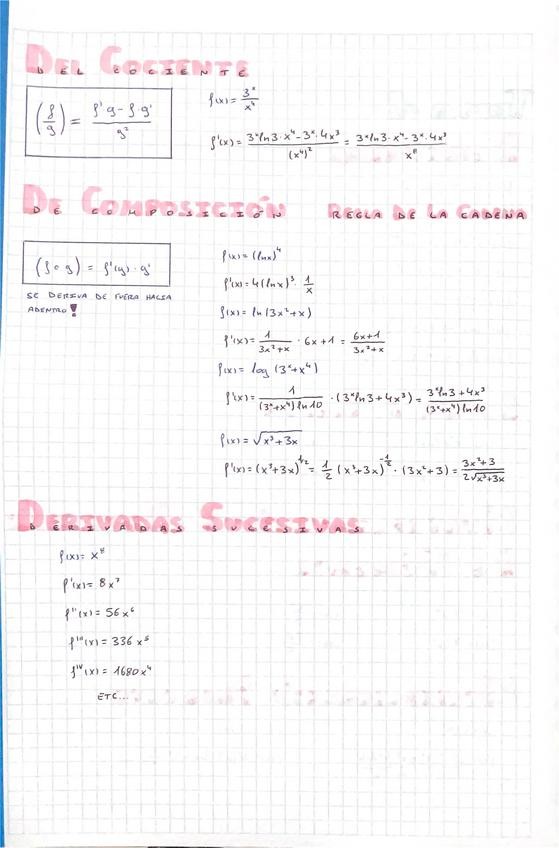 DEL COCIENTE
(f/g) = (f' g - f · g')/g²
f(x) = 3ˣ/x⁴
f'(x) = (3ˣ ln3 · x⁴ - 3ˣ · 4x³)/(x⁴)² = (3ˣ ln3 · x⁴ - 3ˣ · 4x³)/x⁸
DE COMPOSICIÓN REGLA DE LA CADENA
(f ∘ g) = f'(g) · g'
SE DERIVA DE FUERA HACIA
ADENTRO!
f(x) = (lnx)⁴
f'(x) = 4(lnx)³ · 1/x
f(x) = ln(3x²+x)
f'(x) = 1/(3x²+x) · 6x+1 = (6x+1)/(3x²+x)
f(x) = log (3ˣ+x⁴)
f'(x) = 1/((3ˣ+x⁴) ln10) · (3ˣ ln3 + 4x³) = (3ˣ ln3 + 4x³)/((3ˣ+x⁴) ln10)
f(x) = √(x³+3x)
f'(x) = (x³+3x)^(1/2) = 1/2 (x³+3x)^(-1/2) · (3x²+3) = (3x²+3)/(2√(x³+3x))
DERIVADAS SUCESIVAS
f(x) = x⁸
f'(x) = 8x⁷
f''(x) = 56x⁶
f'''(x) = 336x⁵
f^IV(x) = 1680x⁴
ETC...